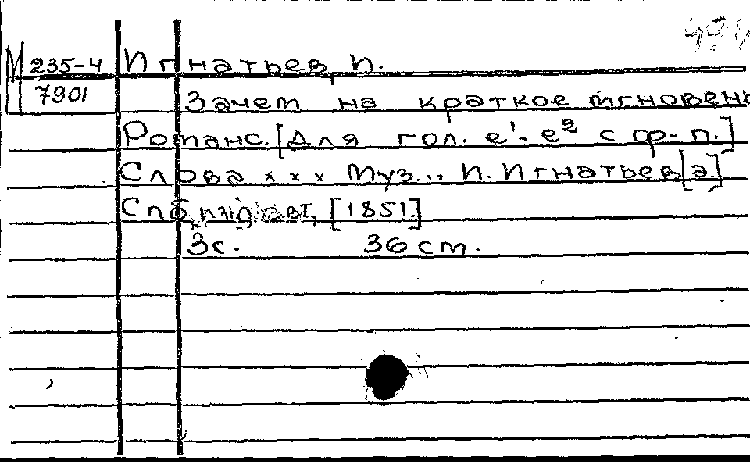 М 235-4 Игнатьев, И.
7901
Зачем на краткое мгновень
Романс. [Для гол. e¹-e² с ф-п.]
Слова x x x Муз... И. Игнатьев[а]
Спб, [1851]
3с. 36 см.